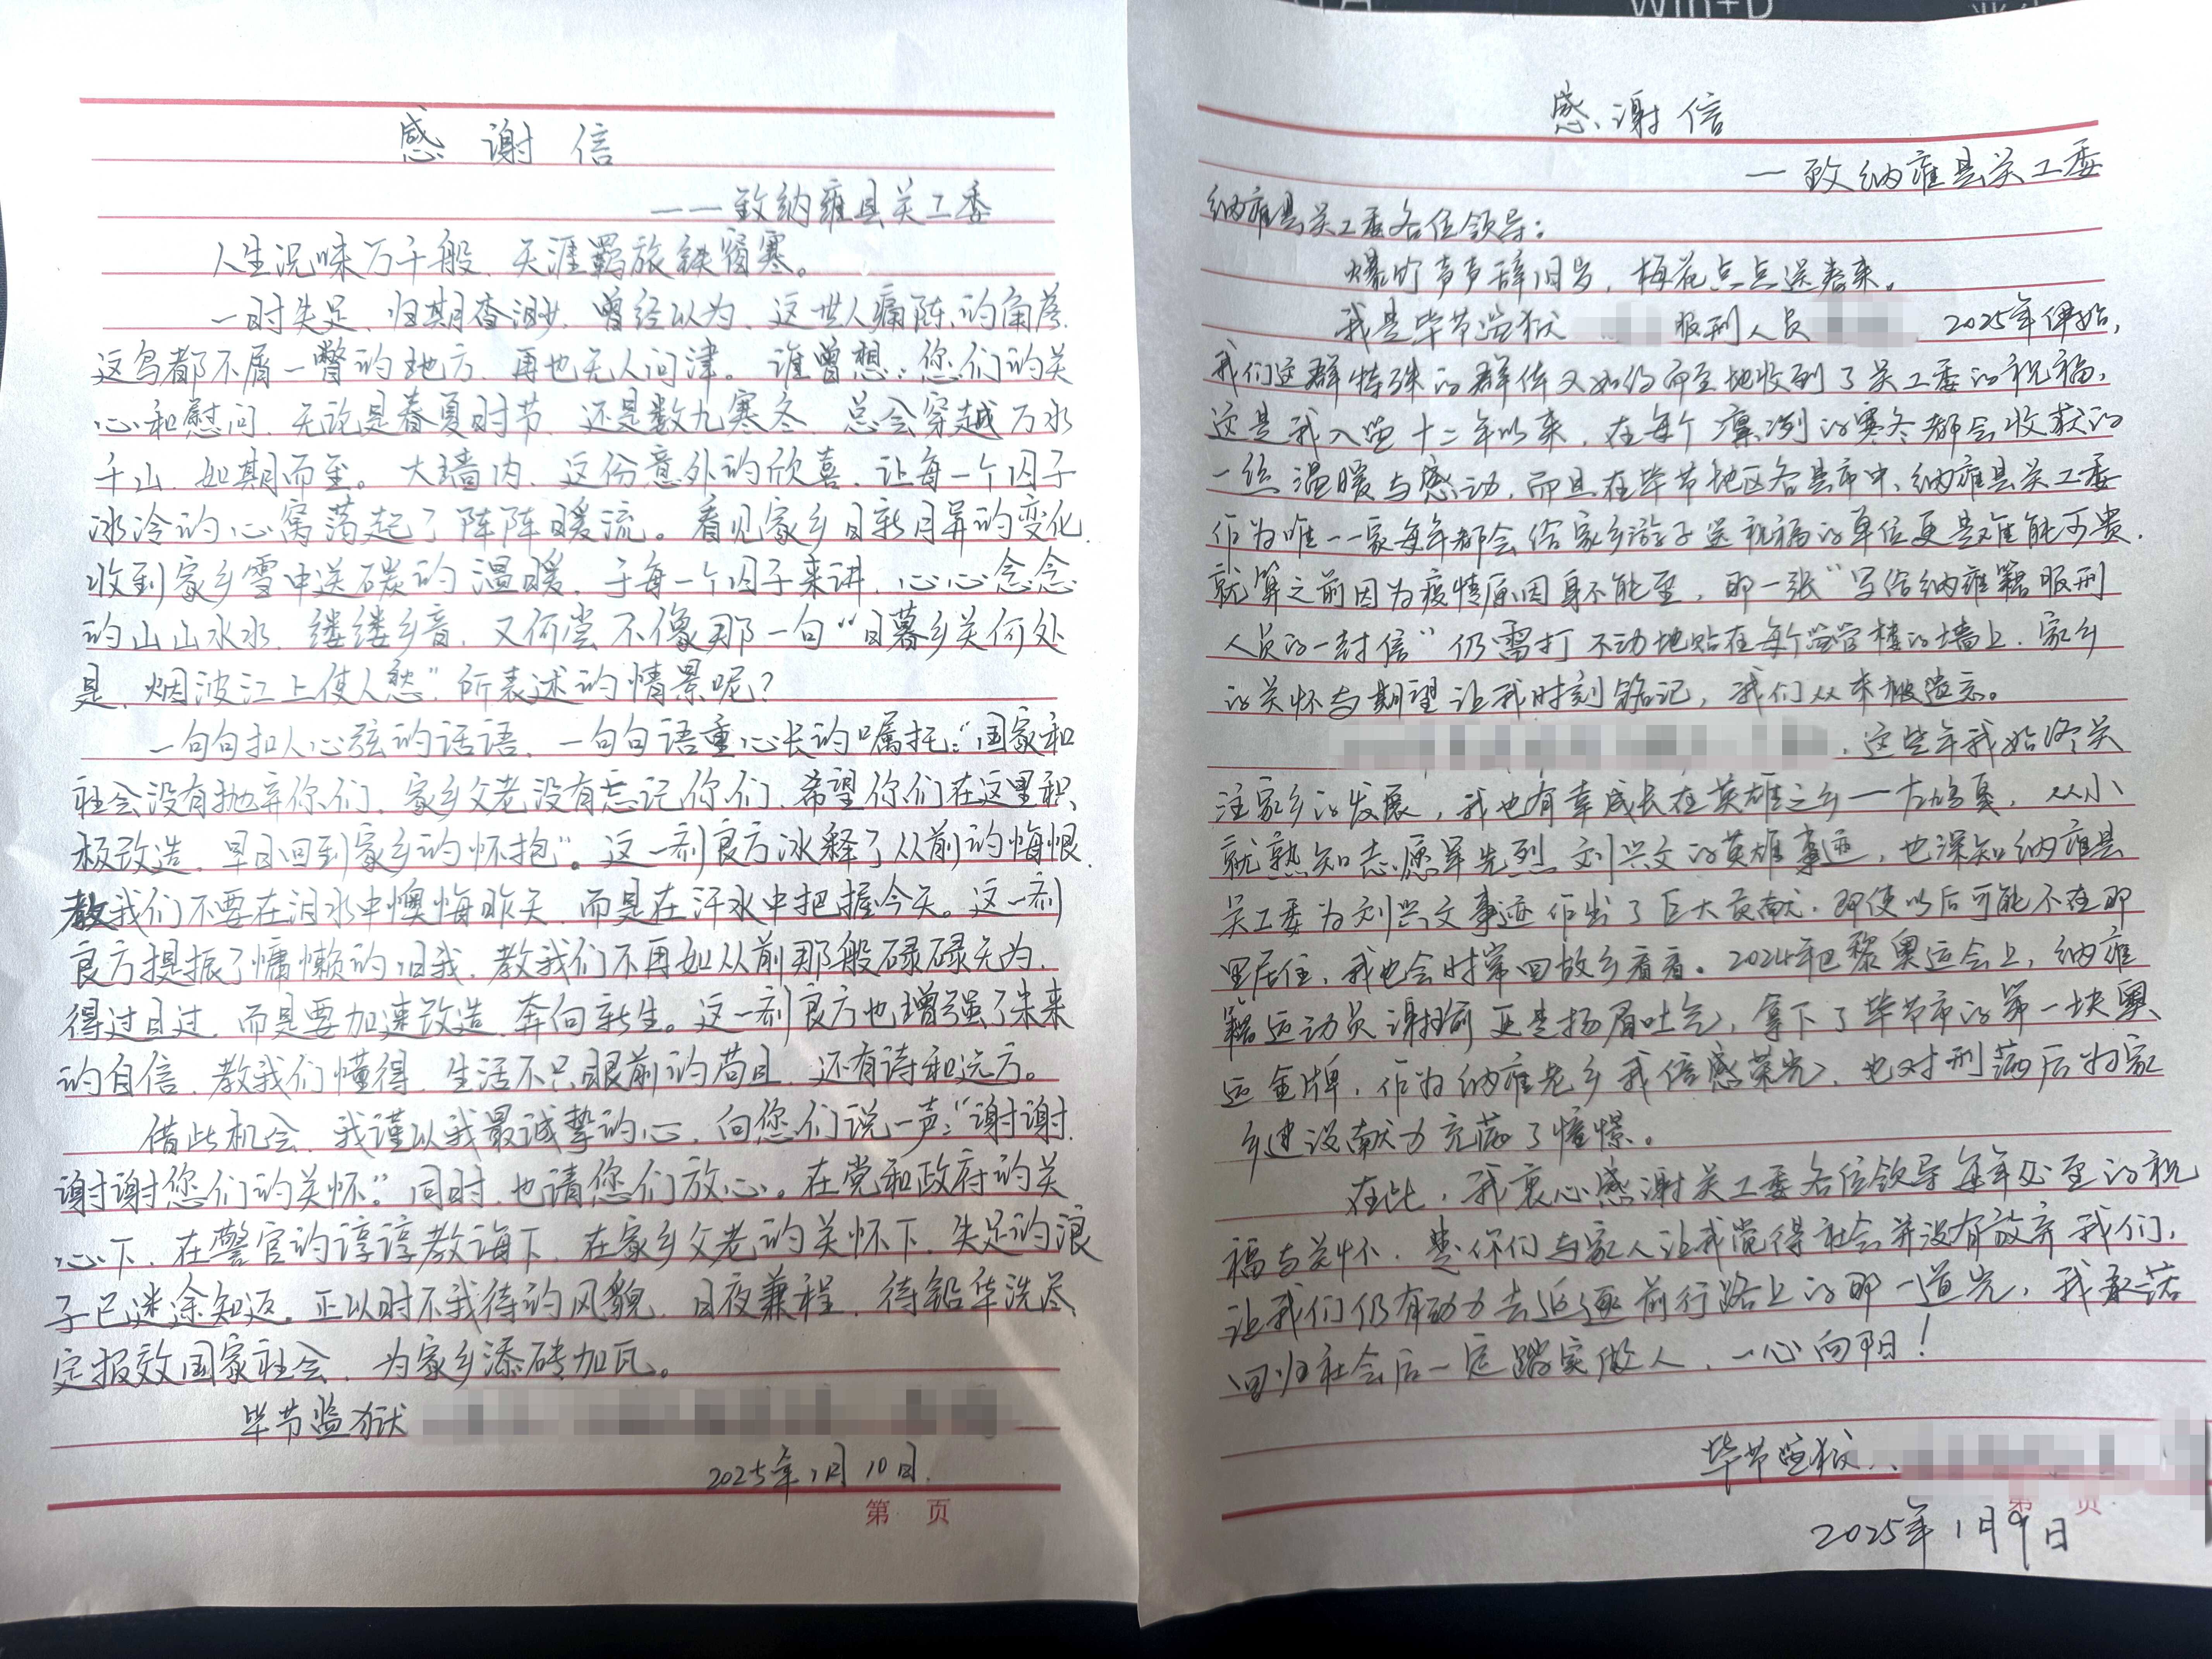 感谢信
——致纳雍县关工委
人生况味万千般,天涯羁旅铁窗寒。
一时失足,归期杳渺,曾经以为,这世人痛陈的角落,
这鸟都不屑一瞥的地方,再也无人问津。谁曾想:您们的关
心和慰问,无论是春夏时节,还是数九寒冬,总会穿越万水
千山,如期而至。大墙内,这份意外的欣喜,让每一个囚子
冰冷的心窝荡起了阵阵暖流。看见家乡日新月异的变化,
收到家乡雪中送碳的温暖,于每一个囚子来讲,心心念念
的山山水水,缕缕乡音,又何尝不像那一句“日暮乡关何处
是,烟波江上使人愁”所表述的情景呢?
一句句扣人心弦的话语,一句句语重心长的嘱托:“国家和
社会没有抛弃你们,家乡父老没有忘记你们,希望你们在这里积
极改造,早日回到家乡的怀抱”。这一剂良方冰释了从前的悔恨,
教我们不要在泪水中懊悔昨天,而是在汗水中把握今天。这一剂
良方提振了慵懒的旧我,教我们不再如从前那般碌碌无为,
得过且过,而是要加速改造,奔向新生。这一剂良方也增强了未来
的自信,教我们懂得,生活不只眼前的苟且,还有诗和远方。
借此机会,我谨以我最诚挚的心,向您们说一声:“谢谢,
谢谢您们的关怀。”同时,也请您们放心。在党和政府的关
心下,在警官的谆谆教诲下,在家乡父老的关怀下,失足的浪
子已迷途知返。正以时不我待的风貌,日夜兼程,待铅华洗尽,
定报效国家社会,为家乡添砖加瓦。
毕节监狱
2025年1月10日.
第 页
感谢信
—致纳雍县关工委
纳雍县关工委各位领导:
爆竹声声辞旧岁,梅花点点送春来。
我是毕节监狱 服刑人员 2025年伊始,
我们这群特殊的群体又如约而至地收到了关工委的祝福,
这是我入监十二年以来,在每个凛冽的寒冬都会收获的
一丝温暖与感动,而且在毕节地区各县市中,纳雍县关工委
作为唯一一家每年都会给家乡游子送祝福的单位更是难能可贵.
就算之前因为疫情原因身不能至,那一张“写给纳雍籍服刑
人员的一封信”仍雷打不动地贴在每个监管楼的墙上,家乡
的关怀与期望让我时刻铭记,我们从未被遗忘。
,这些年我始终关
注家乡的发展,我也有幸成长在英雄之乡—左鸠戛,从小
就熟知志愿军先烈刘兴文的英雄事迹,也深知纳雍县
关工委为刘兴文事迹作出了巨大贡献,即使以后可能不在那
里居住,我也会时常回故乡看看。2024年巴黎奥运会上,纳雍
籍运动员谢瑜更是扬眉吐气,拿下了毕节市的第一块奥
运金牌,作为纳雍老乡我倍感荣光,也对刑满后为家
乡建设献力充满了憧憬。
在此,我衷心感谢关工委各位领导每年处至的祝
福与关怀,是你们与家人让我觉得社会并没有放弃我们,
让我们仍有动力去追逐前行路上的那一道光,我承诺
回归社会后一定踏实做人,一心向阳!
毕节监狱
第 页
2025年1月9日